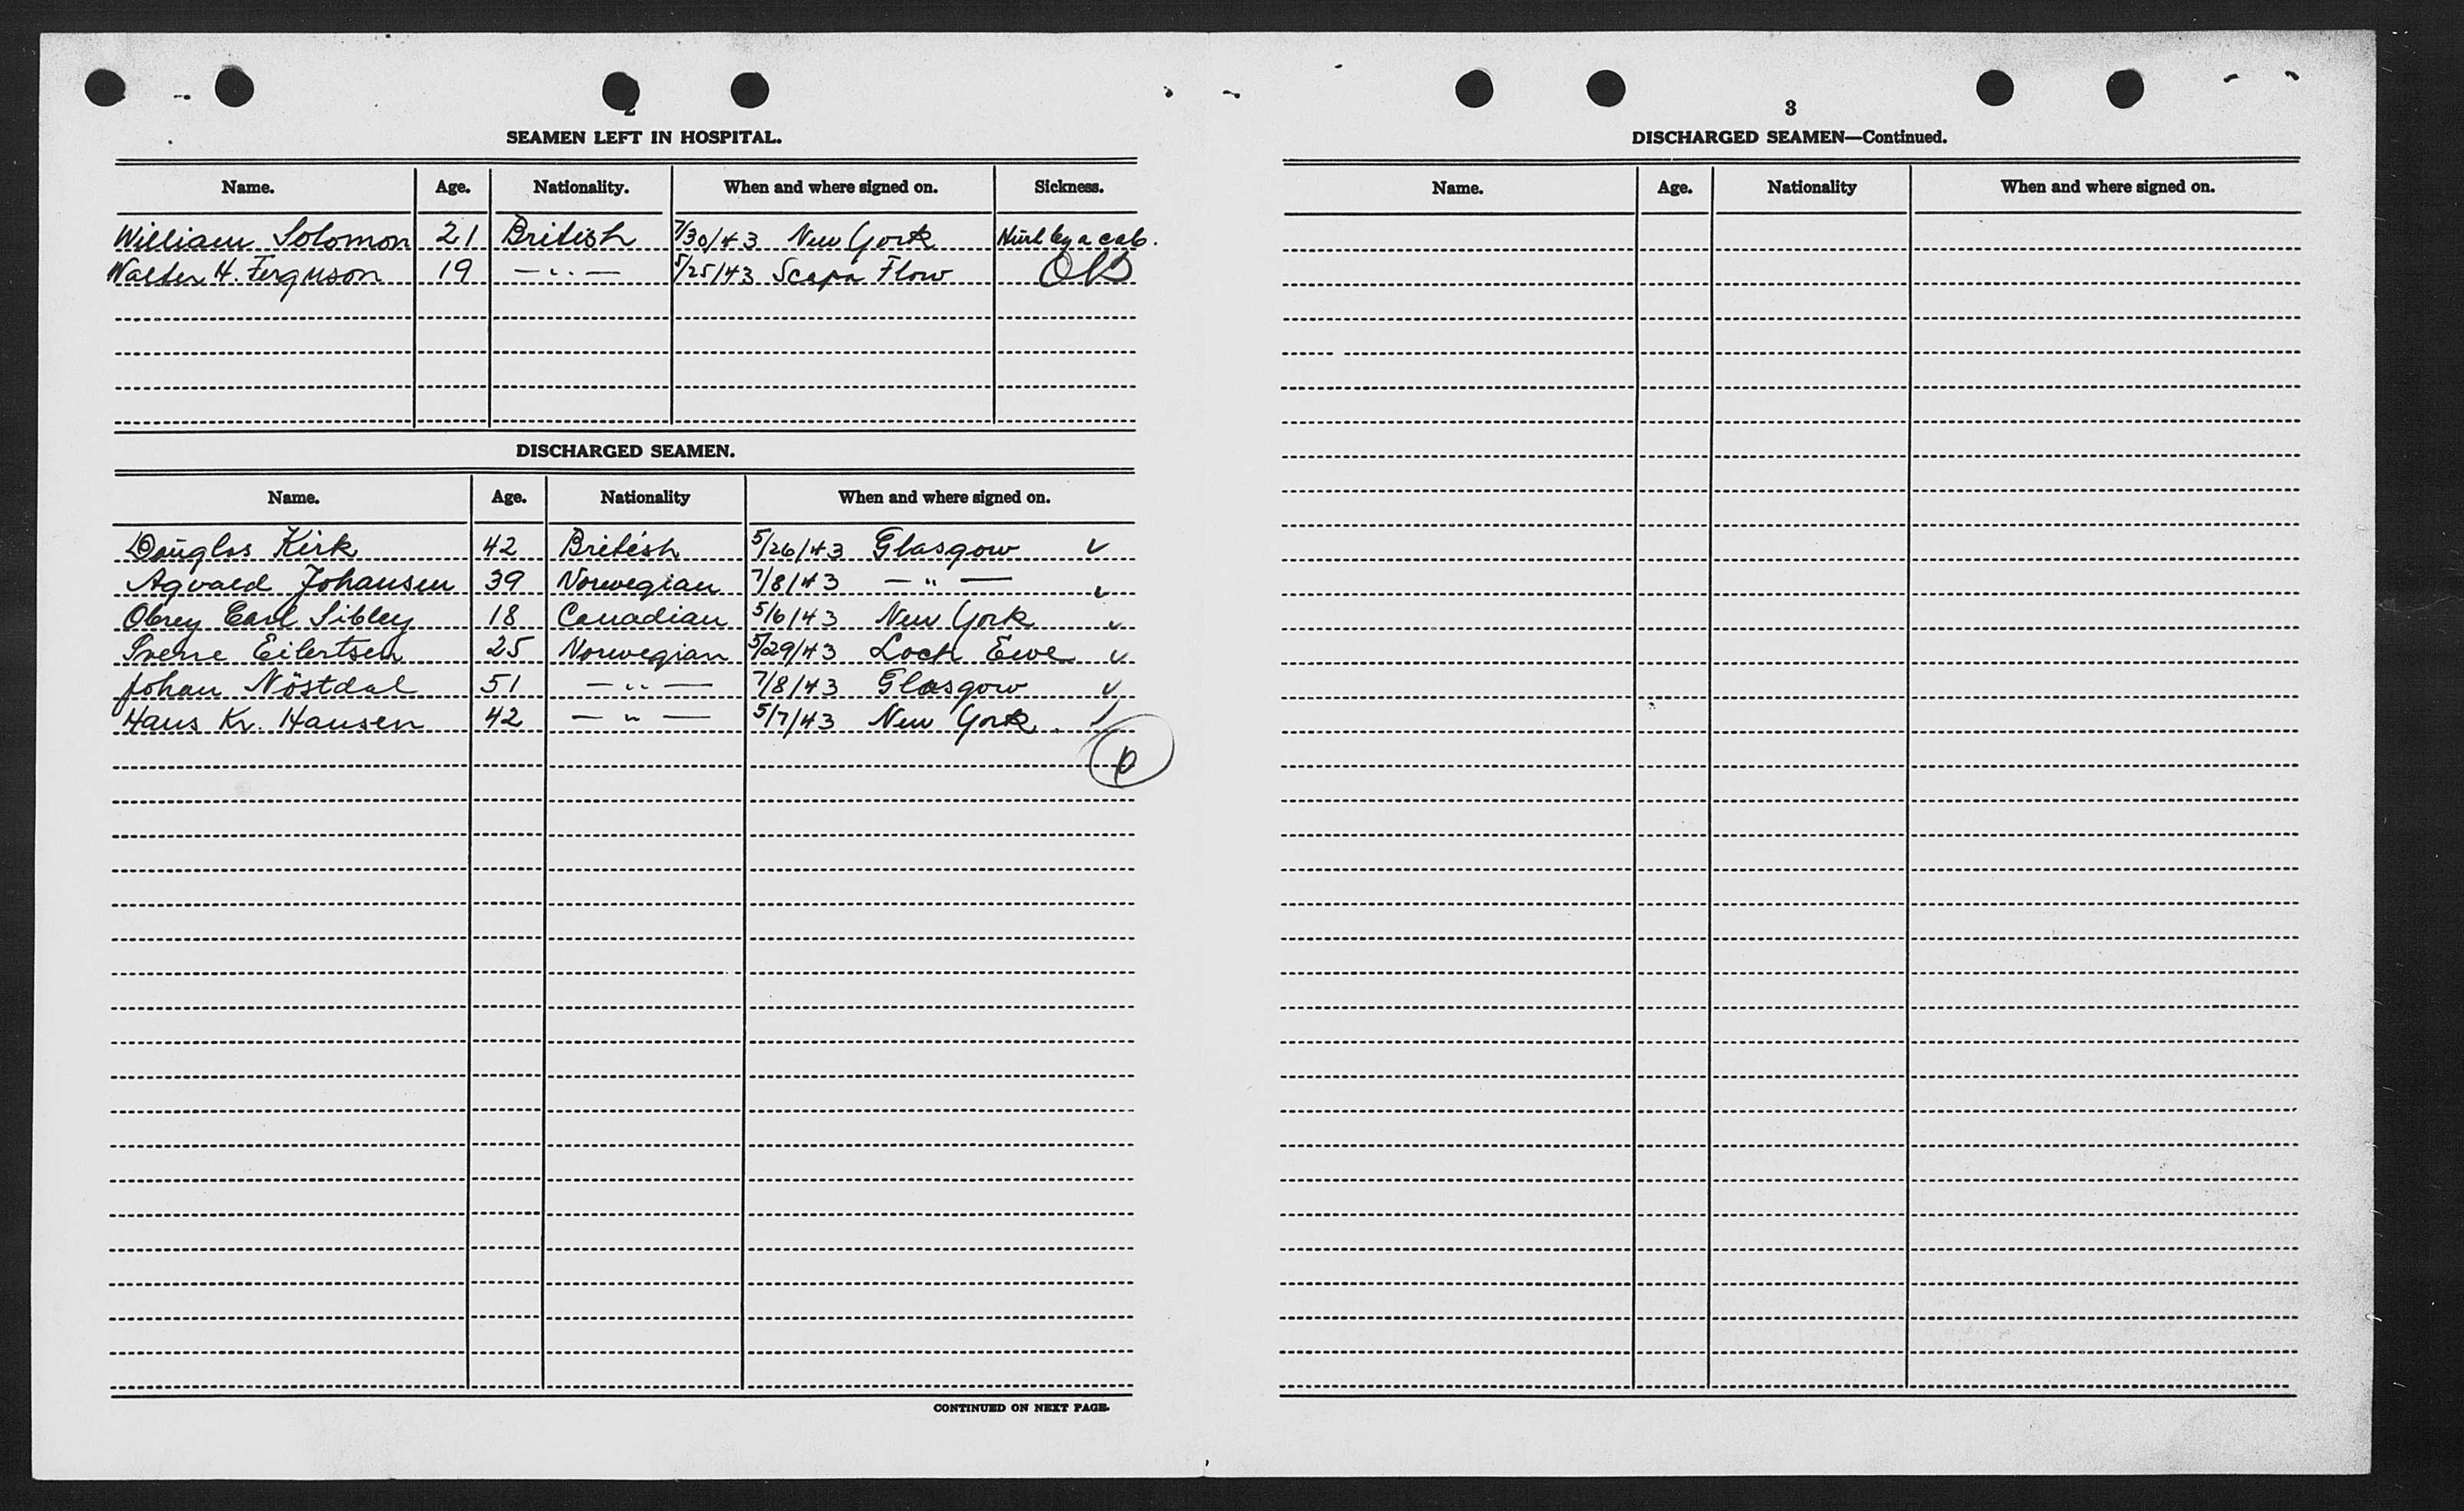 2
SEAMEN LEFT IN HOSPITAL.
Name. Age. Nationality. When and where signed on. Sickness.
William Solomon 21 British 7/30/43 New York Hurt by a cab.
Walter H. Ferguson 19 — " — 5/25/43 Scapa Flow
DISCHARGED SEAMEN.
Name. Age. Nationality When and where signed on.
Douglas Kirk 42 British 5/26/43 Glasgow ✓
Agvald Johansen 39 Norwegian 7/8/43 — " — ✓
Obrey Earl Sibley 18 Canadian 5/6/43 New York ✓
Sverre Eilertsen 25 Norwegian 5/29/43 Loch Ewe ✓
Johan Nöstdal 51 — " — 7/8/43 Glasgow ✓
Hans Kr. Hansen 42 — " — 5/7/43 New York ✓
CONTINUED ON NEXT PAGE.
3
DISCHARGED SEAMEN—Continued.
Name. Age. Nationality When and where signed on.